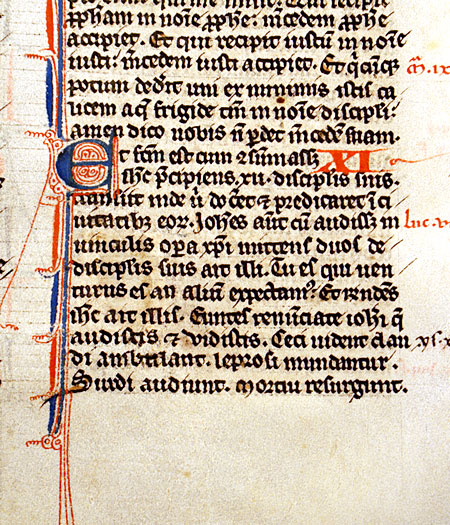 recipit
ꝓpham in noīe ꝓphe: m̄cedem ꝓphe
accipiet. Et qui recipit iustū in noīe
iusti: m̄cedem iusti accipiet. Et q̄cūqꝫ m̄. ix
potum dedit uni ex minimis istis ca
licem aq̄ frigide tm̄ in noīe discipli:
amen dico uobis n̄ ꝑdet m̄cedē suam.
Et fcm̄ est cum ꝯsūmassꝫ XI
ihc p̄cipiens .xii. disciplis suis
transiit inde ū docēt ⁊ predicaret ī ci
uitatibꝫ eoꝝ. Johēs aūt cū audissꝫ in Luc. v
uinculis opa xp̄i mittens duos de
disciplis suis ait illi. Tu es qui uen
turus es an aliū expectamꝰ? Et rn̄dens
ihc ait illis. Euntes renūciate iohī q̄
audistis ⁊ uidistis. Ceci uident clau ys. x
di ambulant. leprosi mundantur.
Surdi audiunt. mortui resurgunt.